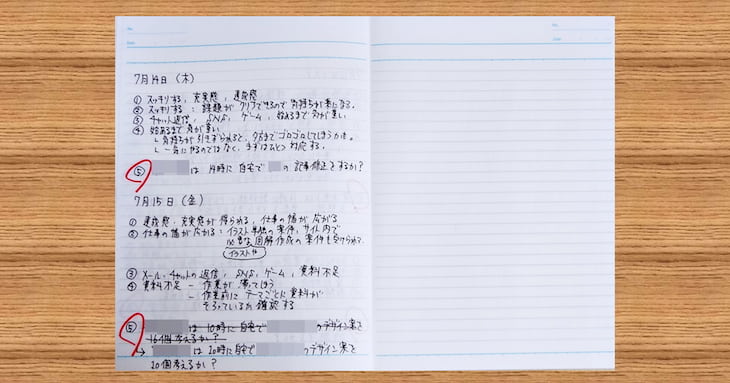 No.
Date
No.
Date
7月14日(木)
① スッキリする、充実感、達成感
② スッキリする:課題がクリアできるので気持ちが楽になる。
③ チャット返信、SNS、ゲーム、始めるまで気が重い
④ 始めるまで気が重い
└ 気持ちが引きずられると、夕方までゴロゴロしてしまうかも。
└ 一気にやるのではなく、まずはひとつ対応する。
⑤ は 14時に自宅で の記事修正をするか?
7月15日(金)
① 達成感・充実感が得られる、仕事の幅が広がる
② 仕事の幅が広がる:イラスト単独の案件、サイト内で
必要な図解作成の案件も受けられて
イラストや
③ メール・チャットの返信、SNS、ゲーム、資料不足
④ 資料不足 - 作業が滞ってしまう
- 作業前にテーマごとに資料が
そろっているか確認する
⑤ は 10時に自宅で のデザイン案を
10個考えるか?
→ は 20時に自宅で のデザイン案を
20個考えるか?